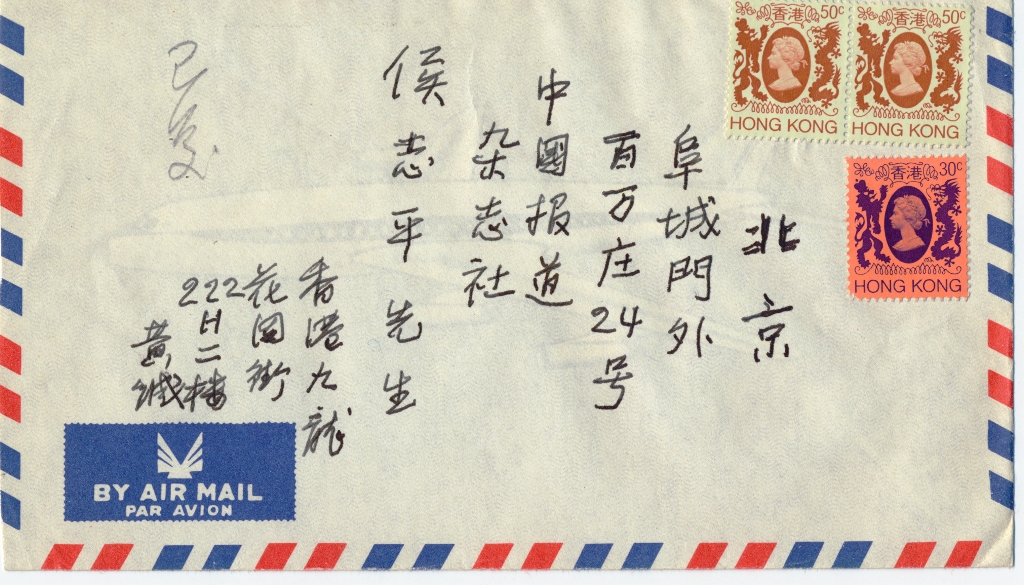 香港 50c
HONG KONG
香港 50c
HONG KONG
香港 30c
HONG KONG
北京
阜城門外
百万庄24号
中國报道
杂志社
侯志平先生
香港九龍
花园街
222
H二楼
黃城
已
BY AIR MAIL
PAR AVION